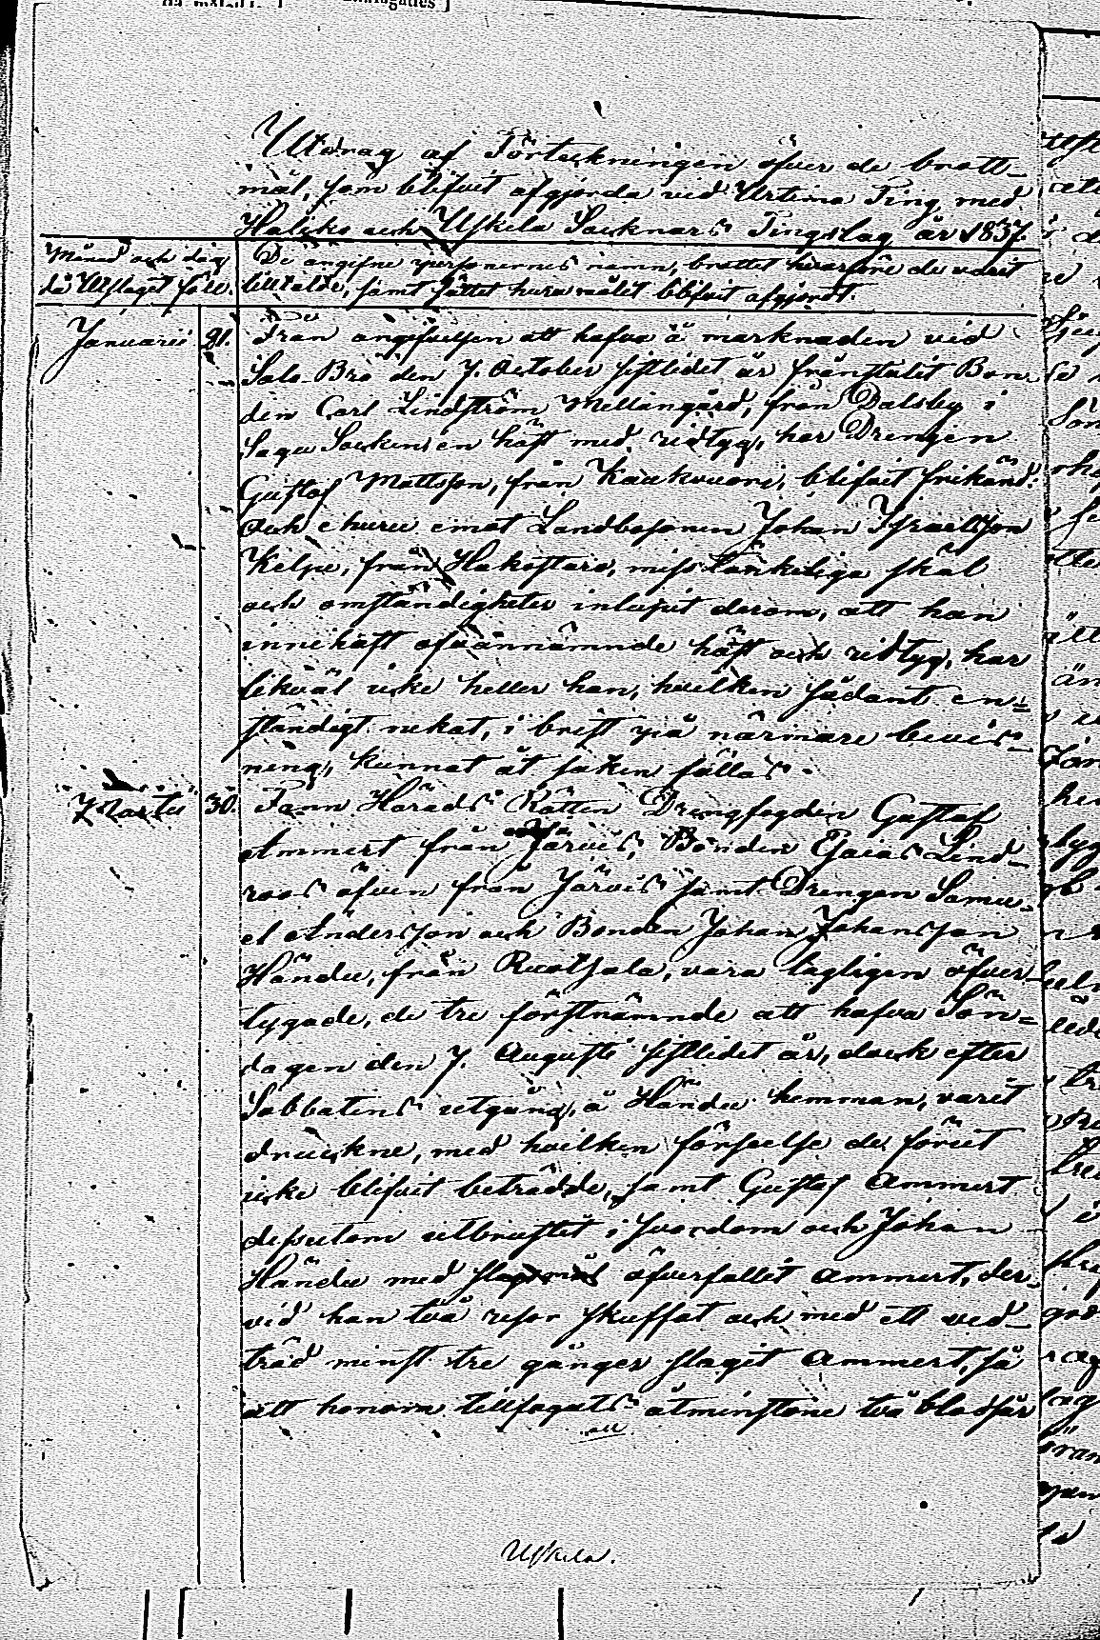 Utdrag af Förteckningen öfver de brott-
mål, som blifvit afgjorda vid Urtima Ting med
Haliko och Uskela Socknars Tingslag år 1837.
Månad och dag
då Utslaget föll.
De angifne personernes namn, brottet hvarföre de varit
tilltalde, samt sättet huru målet blifvit afgjordt.
Januarii 31. Från angifvelsen att hafva å marknaden vid
Salo Bro den 7. October sistledet år frånstulit Bon-
den Carl Lindström Mellangård, från Dalsby i
Sagu Socken en häst med ridtyg, har Drengen
Gustaf Mattsson, från Kaukvuori, blifvit frikänd:
Och ehuru emot Landbosonen Johan Israelsson
Kelpe, från Hakostaro, misstänkeliga skäl
och omständigheter inlupit derom, att han
innehaft ofvannämnde häst och ridtyg, har
likväl icke heller han, hvilken sådant en-
ständigt nekat, i brist på närmare bevis-
ning, kunnat åt saken fällas.
Martii 30. Fann Härads Rätten Drengfogden Gustaf
Ammert från Järvis, Bonden Esaias Lind-
roos äfven från Järvis samt Drengen Samu-
el Andersson och Bonden Johan Johansson
Händu, från Ruotsala, vara lagligen öfver-
tygade, de tre förstnämnde att hafva Sön-
dagen den 7. Augusti sistledet år, dock efter
Sabbatens utgång, å Händu hemman, varit
druckne, med hvilken förseelse de förut
icke blifvit beträdde, samt Gustaf Ammert
dessutom utbrustit i svordom och Johan
Händu med slagsmål öfverfallit Ammert, der-
vid han två resor skuffat och med ett ved-
träd minst tre gånger slagit Ammert, så
att honom tillfogats åtminstone två blodsår
Uskela.